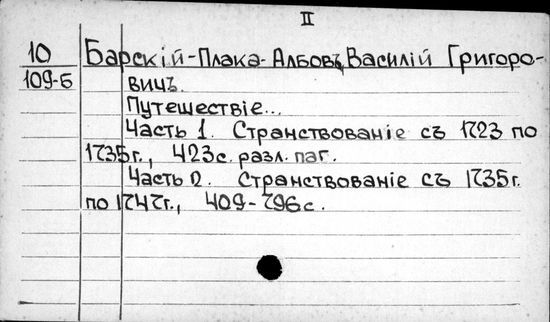 II
10 Барскій-Плака-Албовъ, Василій Григоро-
109-Б вичъ.
Путешествіе...
Часть 1. Странствованіе съ 1723 по
1735г., 423с. разл. паг.
Часть 2. Странствованіе съ 1735г.
по 1747г., 409-796с.